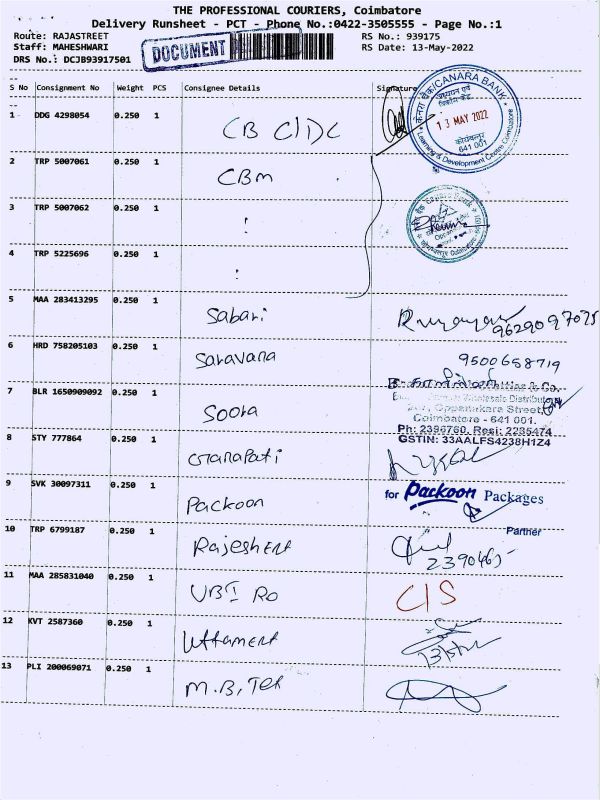 THE PROFESSIONAL COURIERS, Coimbatore
Delivery Runsheet - PCT - Phone No.:0422-3505555 - Page No.:1
Route: RAJASTREET RS No.: 939175
Staff: MAHESHWARI RS Date: 13-May-2022
DRS No.: DCJB93917501
DOCUMENT
S No Consignment No Weight PCS Consignee Details Signature
1 DDG 4298054 0.250 1 CB C/DC
केनरा बैंक/CANARA BANK
अध्ययन एवं
13 MAY 2022
कोयम्बत्तूर
641 001
Learning & Development Centre Coimbatore
2 TRP 5007061 0.250 1 CBM
3 TRP 5007062 0.250 1 :
4 TRP 5225696 0.250 1 :
5 MAA 283413295 0.250 1 Sabari
9629097075
6 HRD 758205103 0.250 1 Saravana 9500658719
7 BLR 1650909092 0.250 1 Soora
Wholesale Distributors
Oppanakara Street,
Coimbatore - 641 001.
Ph: 2396760. Resi: 2285474
GSTIN: 33AALFS4238H1Z4
8 STY 777864 0.250 1 Ganapati
9 SVK 30097311 0.250 1 Packoon for Packoon Packages
Partner
10 TRP 6799187 0.250 1 Rajeshent
2390465
11 MAA 285831040 0.250 1 UBI RO C/S
12 KVT 2587360 0.250 1 Uttament
13 PLI 200069071 0.250 1 M.B, Tex